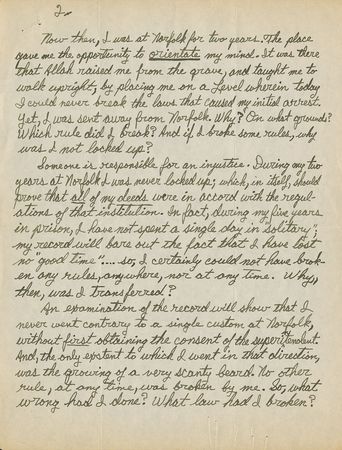 2.
Now then, I was at Norfolk for two years. The place
gave me the opportunity to orientate my mind. It was there
that Allah raised me from the grave, and taught me to
walk upright, by placing me on a Level wherein today
I could never break the laws that caused my initial arrest.
Yet, I was sent away from Norfolk. Why? On what grounds?
Which rule did I break? And if I broke some rules, why
was I not locked up?
Someone is responsible for an injustice. During my two
years at Norfolk I was never locked up; which, in itself, should
prove that all of my deeds were in accord with the regul-
ations of that institution. In fact, during my five years
in prison, I have not spent a single day in "solitary";
my record will bare out the fact that I have lost
no "good time".... so, I certainly could not have brok-
en any rules, anywhere, nor at any time. Why,
then, was I transferred?
An examination of the record will show that I
never went contrary to a single custom at Norfolk,
without first obtaining the consent of the superintendent.
And, the only extent to which I went in that direction,
was the growing of a very scanty beard. No other
rule, at any time, was broken by me. So, what
wrong had I done? What law had I broken?